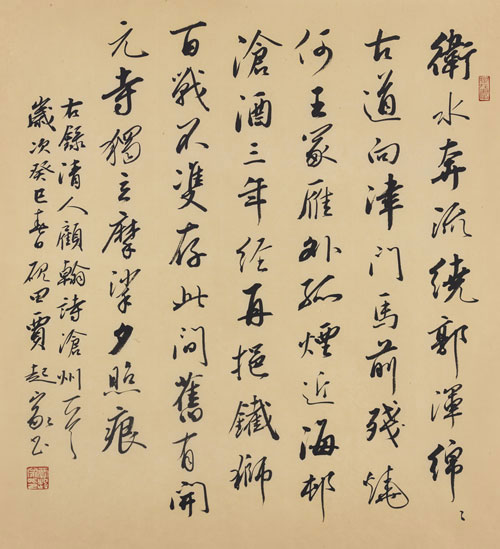 衛水奔流繞郭渾綿〻
古道向津門馬前殘燒
何王冢雁外孤煙近海邨
滄酒三年經再挹鐵獅
百戰不雙存此間舊有開
元寺獨立摩挲夕照痕
右錄清人顧翰詩滄州一首
歲次癸巳春日硯田賈起家書